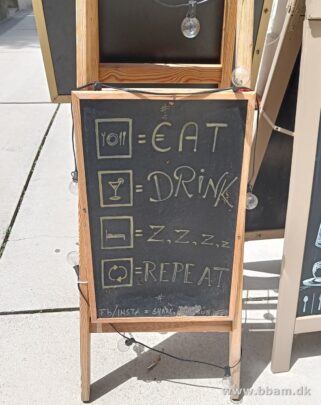 = €AT
= DRINK
= Z, Z, Z, z
= REPEAT
FB/INSTA =
www.bbam.dk